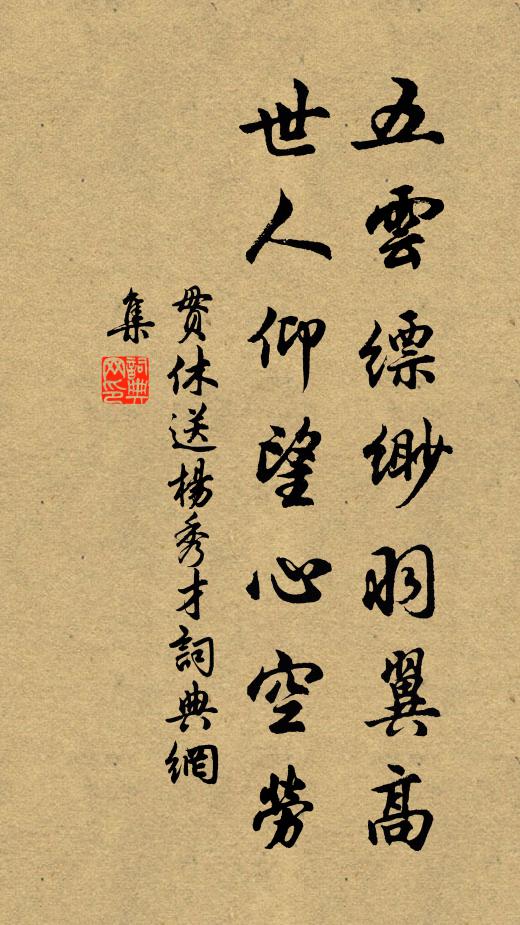 五雲縹緲羽翼高
世人仰望心空勞
貫休送楊秀才詞典網
集
詞典
网印